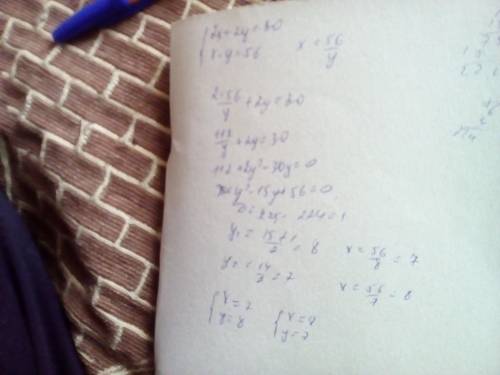 {2x+2y=30
x·y=56 x=56/y
2·56/y+2y=30
112/y+2y=30
112+2y²-30y=0
y²-15y+56=0
D=225-224=1
y₁=15+1/2=8 x=56/8=7
y=14/2=7
x=56/7=8
{x=7 y=8 {x=8 y=7